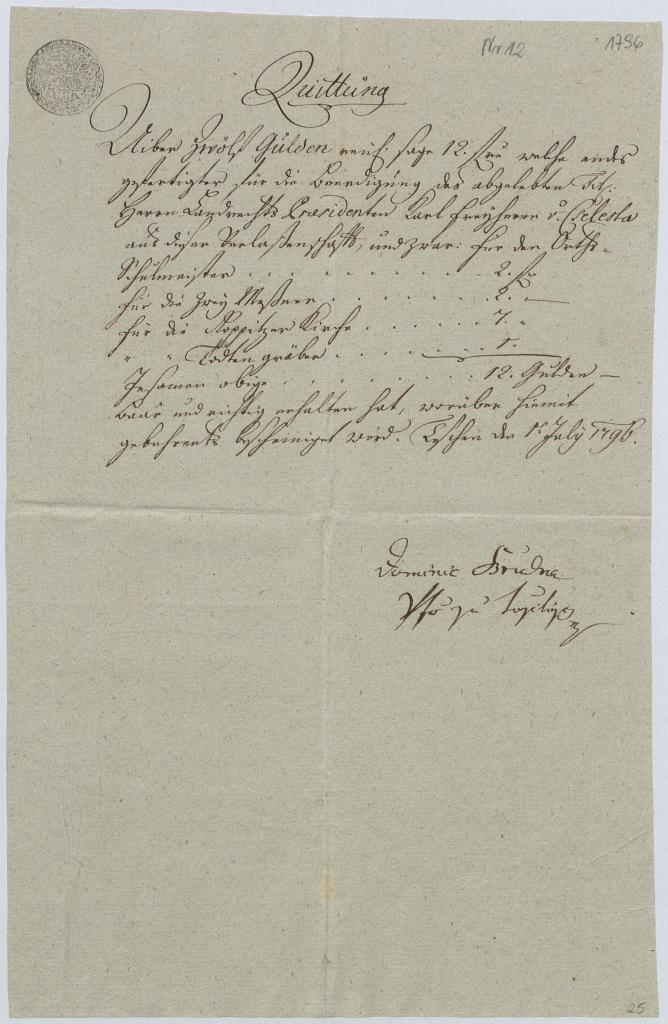 Nr 12
1796
Quittung
Uiber Zwölf Gulden reinl: sage 12. fl welche endes
gefertigter für die Beerdigung des abgelebten Tit:
Herrn Landrechts Præsidenten Karl Freyherrn v. Celesta
aus dieser Verlassenschaft, und zwar: für den Orths-
Schulmeister . . . . . . . . . 2. fl
für die zwey Meßner . . . . . . 2. –
für die Koppitzer Kirche . . . . . . 7. "
" " Todten gräber . . . . . 1.
Insamen obige . . . . . . . . 12. Gulden –
baar und richtig erhalten hat, worüber hiemit
gebehrents bescheiniget wird. Teschen den 1t July 1796.
Dominic
Pfr zu
25